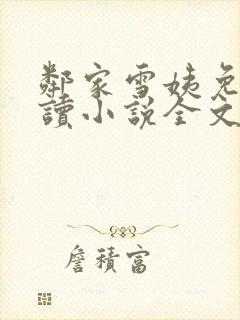 鄰家雪姨免
讀小說全文
詹積富